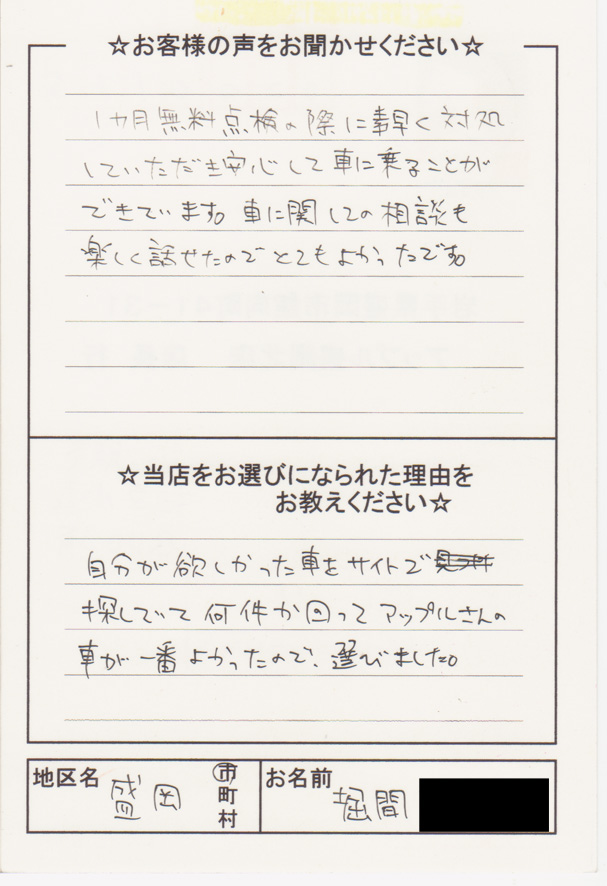 ☆お客様の声をお聞かせください☆
1カ月無料点検の際に素早く対処
していただき安心して車に乗ることが
できています。車に関しての相談も
楽しく話せたのでとてもよかったです。
☆当店をお選びになられた理由を
お教えください☆
自分が欲しかった車をサイトで
探していて何件か回ってアップルさんの
車が一番よかったので、選びました。
地区名 盛岡 市町村
お名前 堀間